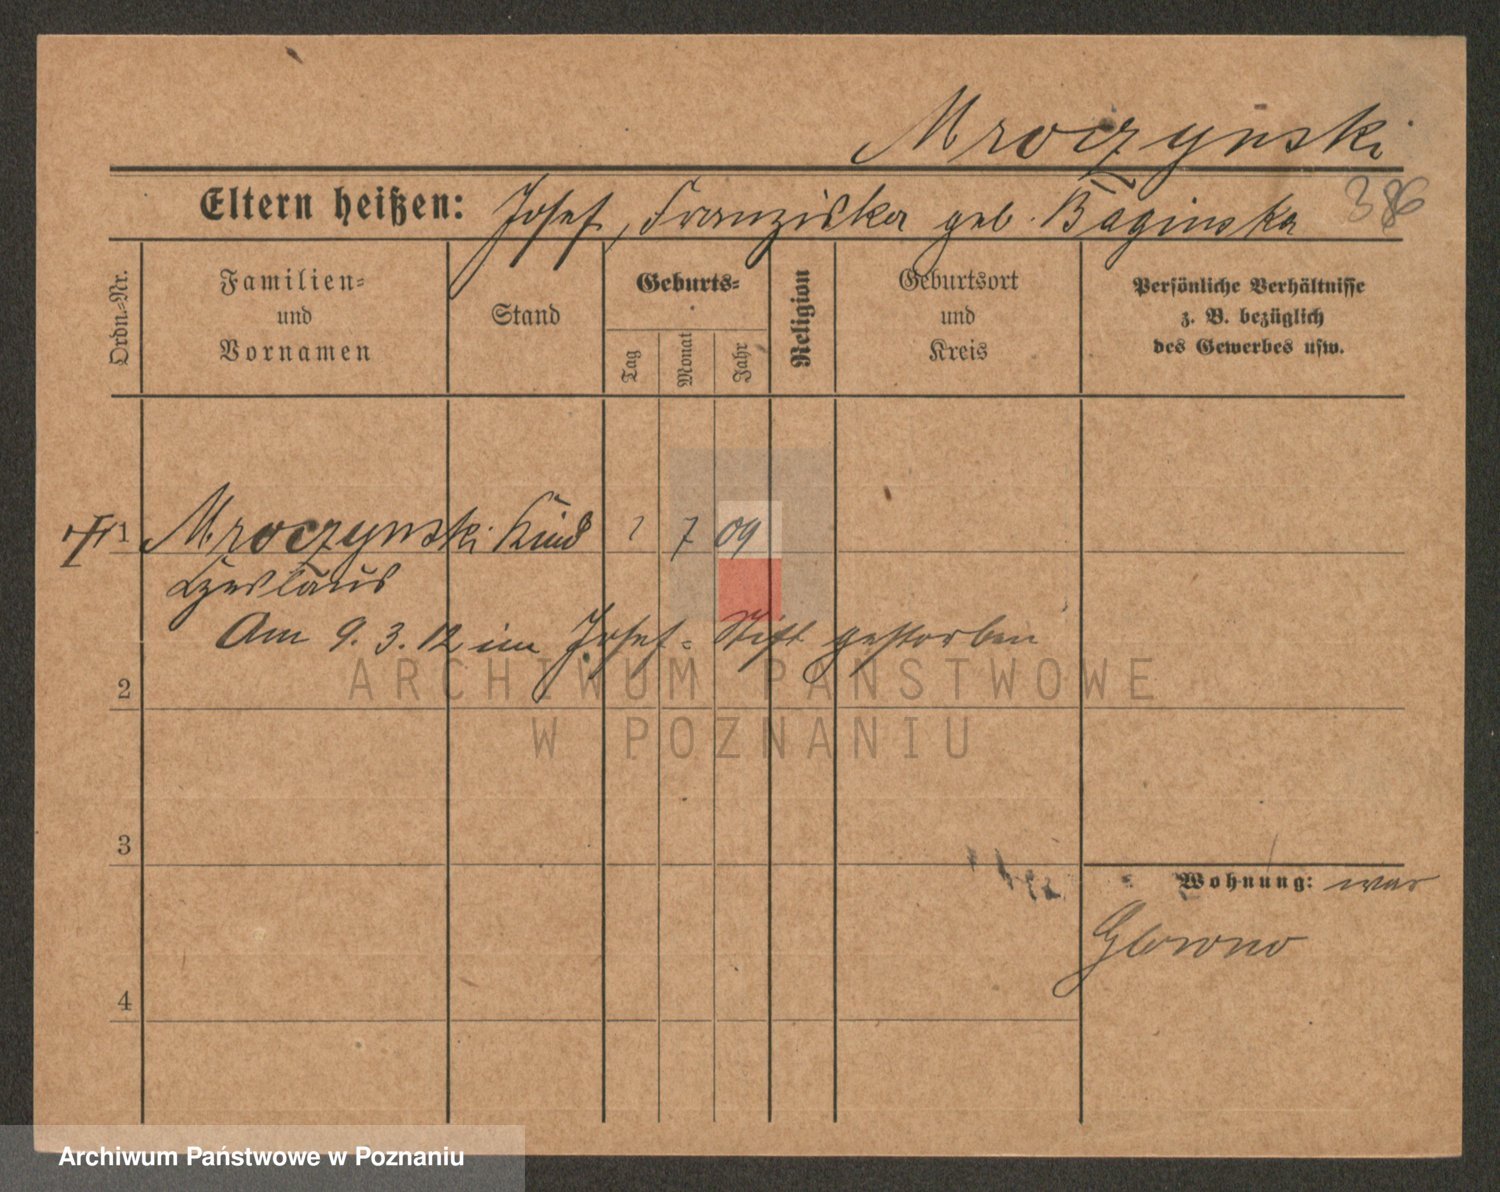 Mroczynski
Eltern heißen: Josef, Franziska geb. Baginska 386
Ordn.-Nr.
Familien-
und
Vornamen
Stand
Geburts-
Tag
Monat
Jahr
Religion
Geburtsort
und
Kreis
Persönliche Verhältnisse
z. B. bezüglich
des Gewerbes usw.
1 Mroczynski Kind ? 7 09
Czeslaus
Am 9. 3. 12 im Josef-Stift gestorben
ARCHIWUM PAŃSTWOWE
W POZNANIU
2
3
Wohnung: war
Glowno
4
Archiwum Państwowe w Poznaniu